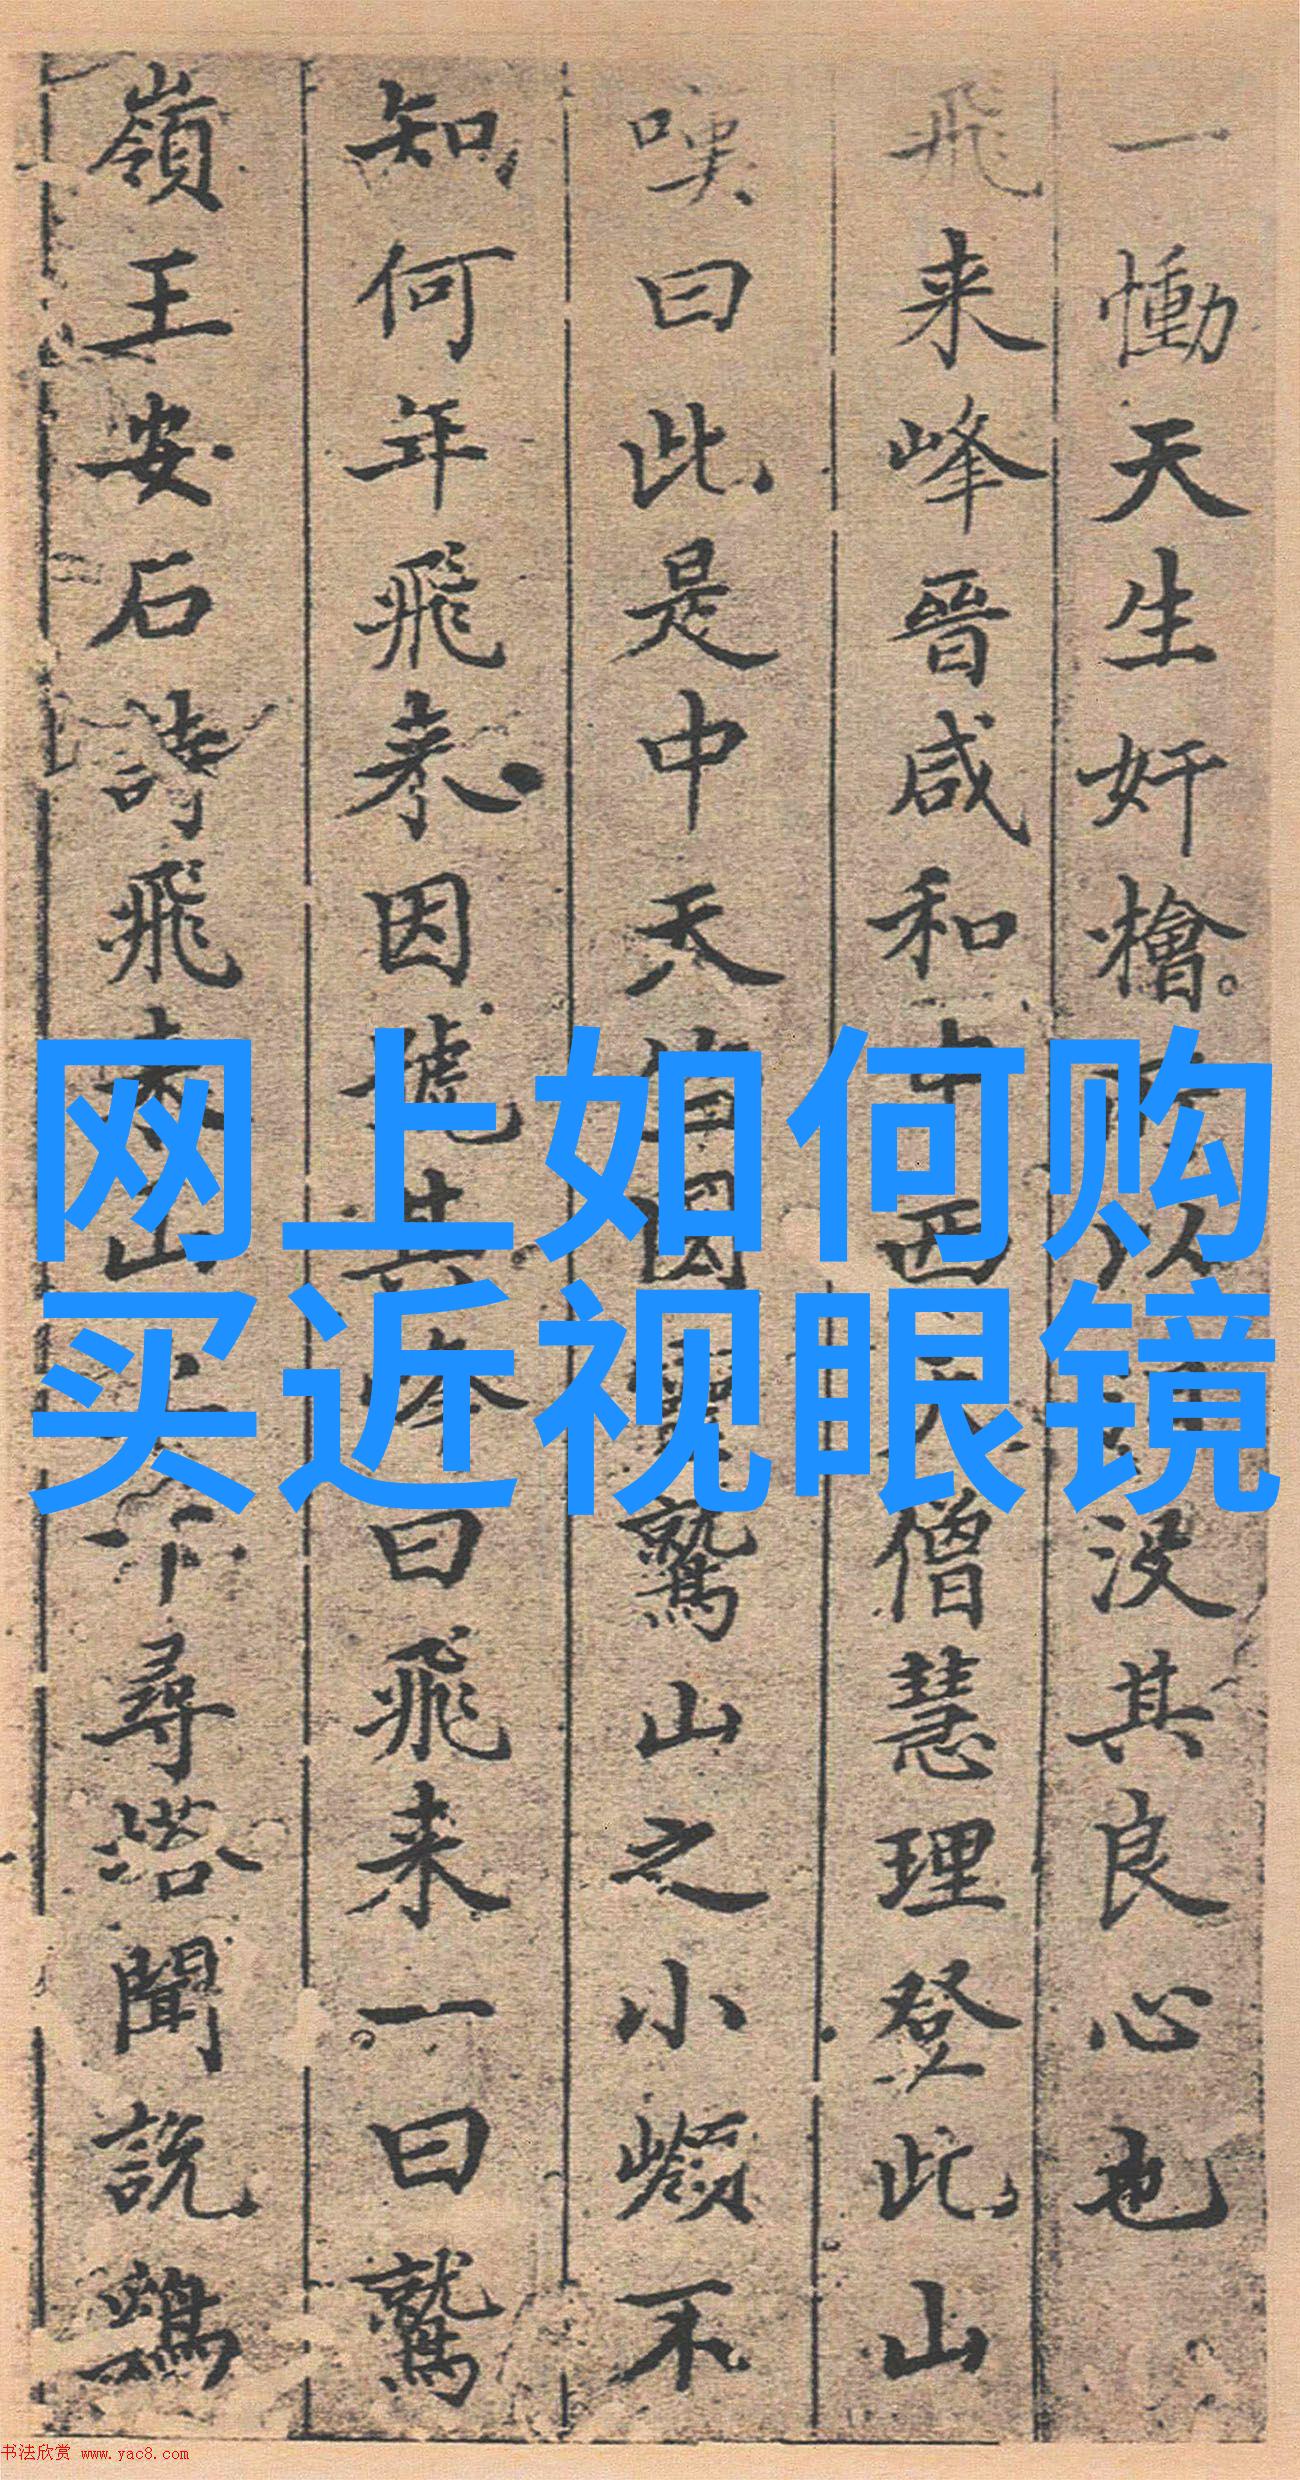 网上如何购
买近视眼镜
一慟天生奸檜所以没其良心也
飛来峰晉咸和中西天僧慧理登此山
嘆曰此是中天竺国靈鷲山之小嶺不
知何年飛来因號其曰飛来一曰鷲
嶺王安石詩飛来山上千尋塔聞説鷄
书法欣赏 www.yac8.com